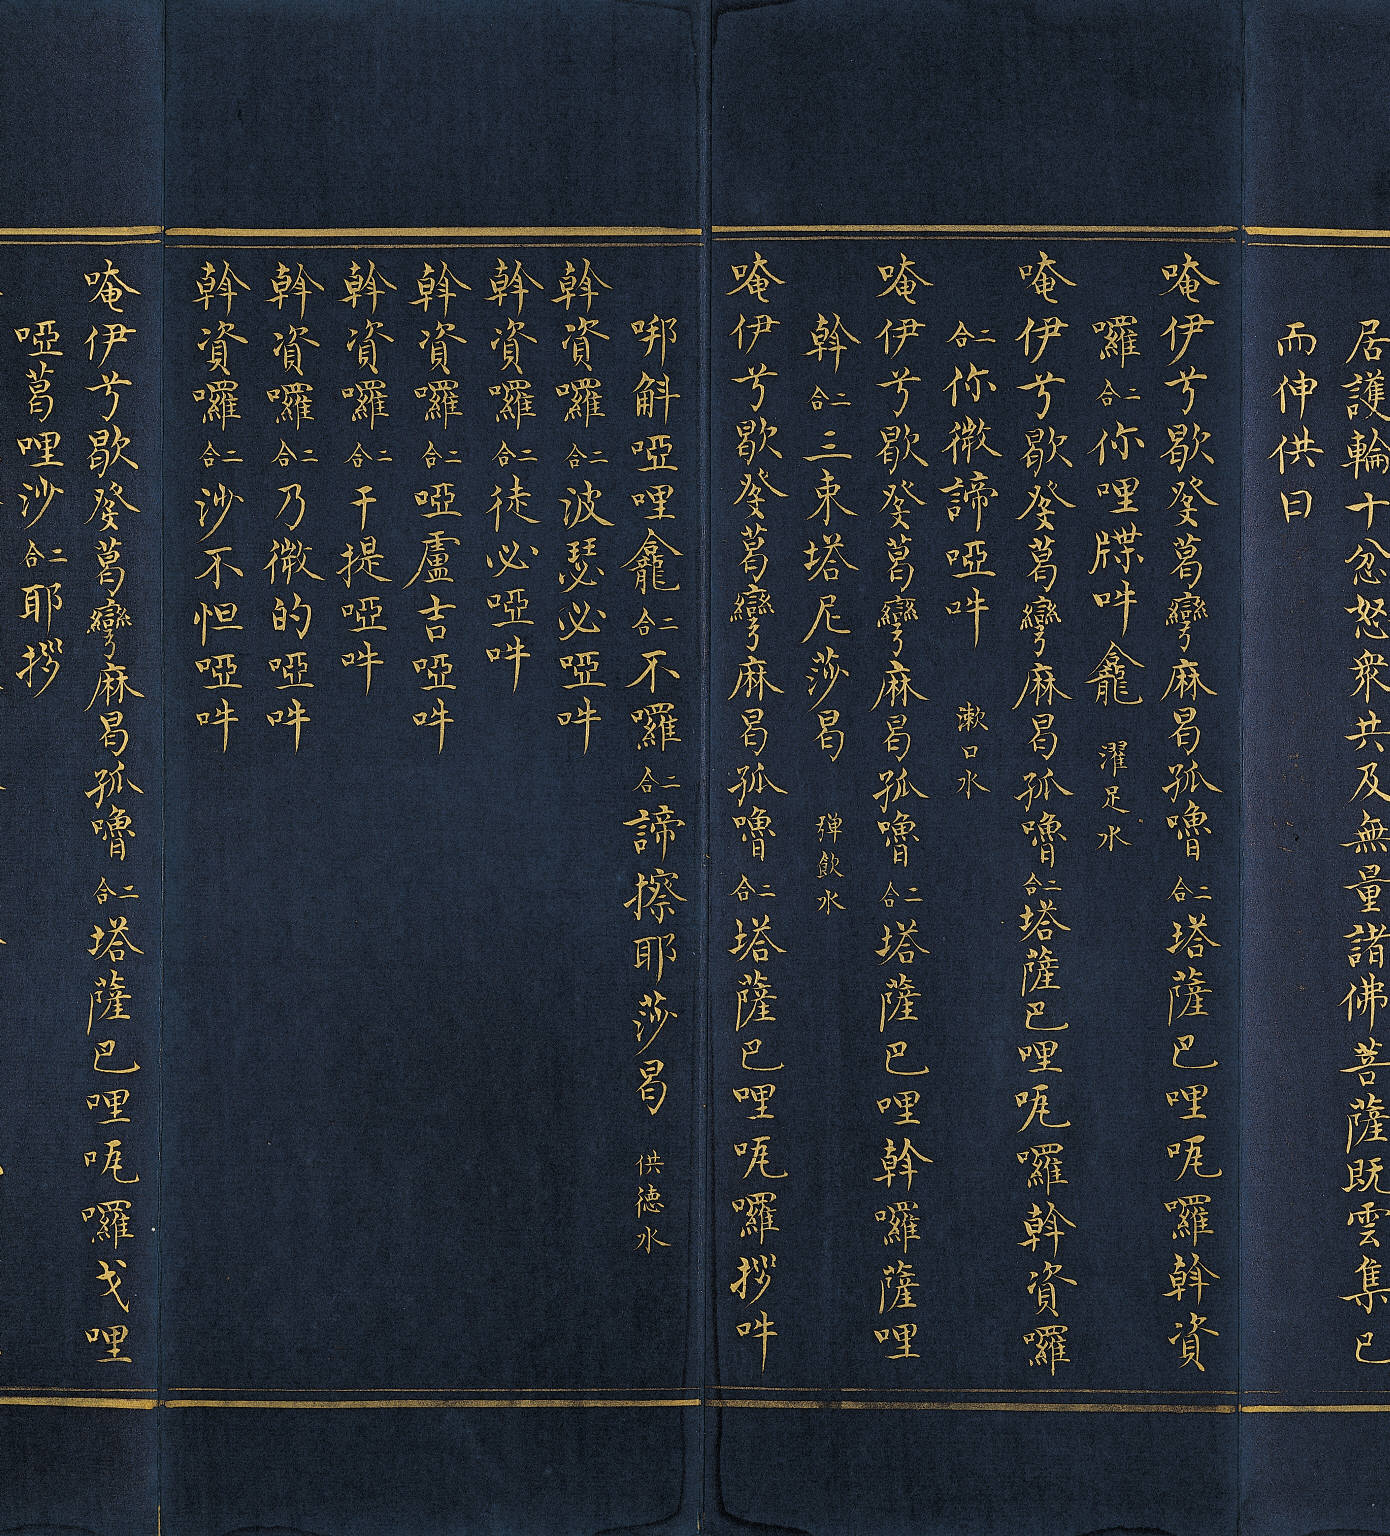 居護輪十忿怒衆共及無量諸佛菩薩既雲集已
而伸供曰
唵伊兮歇癹葛彎麻曷孤嚕二合塔薩巴哩㖠囉斡資
囉二合你哩牒吽龕 濯足水
唵伊兮歇癹葛彎麻曷孤嚕二合塔薩巴哩㖠囉斡資囉
二合你微諦啞吽 漱口水
唵伊兮歇癹葛彎麻曷孤嚕二合塔薩巴哩斡囉薩哩
斡二合三束塔尼莎曷 彈飲水
唵伊兮歇癹葛彎麻曷孤嚕二合塔薩巴哩㖠囉拶吽
㖿斛啞哩龕二合不囉二合諦擦耶莎曷 供德水
斡資囉二合波瑟必啞吽
斡資囉二合徒必啞吽
斡資囉二合啞盧吉啞吽
斡資囉二合干提啞吽
斡資囉二合乃微的啞吽
斡資囉二合沙不怛啞吽
唵伊兮歇癹葛彎麻曷孤嚕二合塔薩巴哩㖠囉戈哩
啞葛哩沙二合耶拶